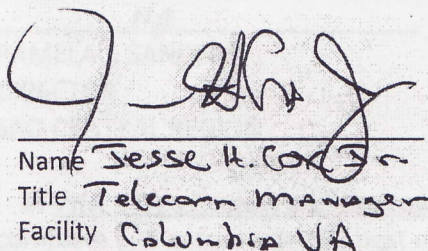 Name Jesse H. Cox Jr
Title Telecom Manager
Facility Columbia VA